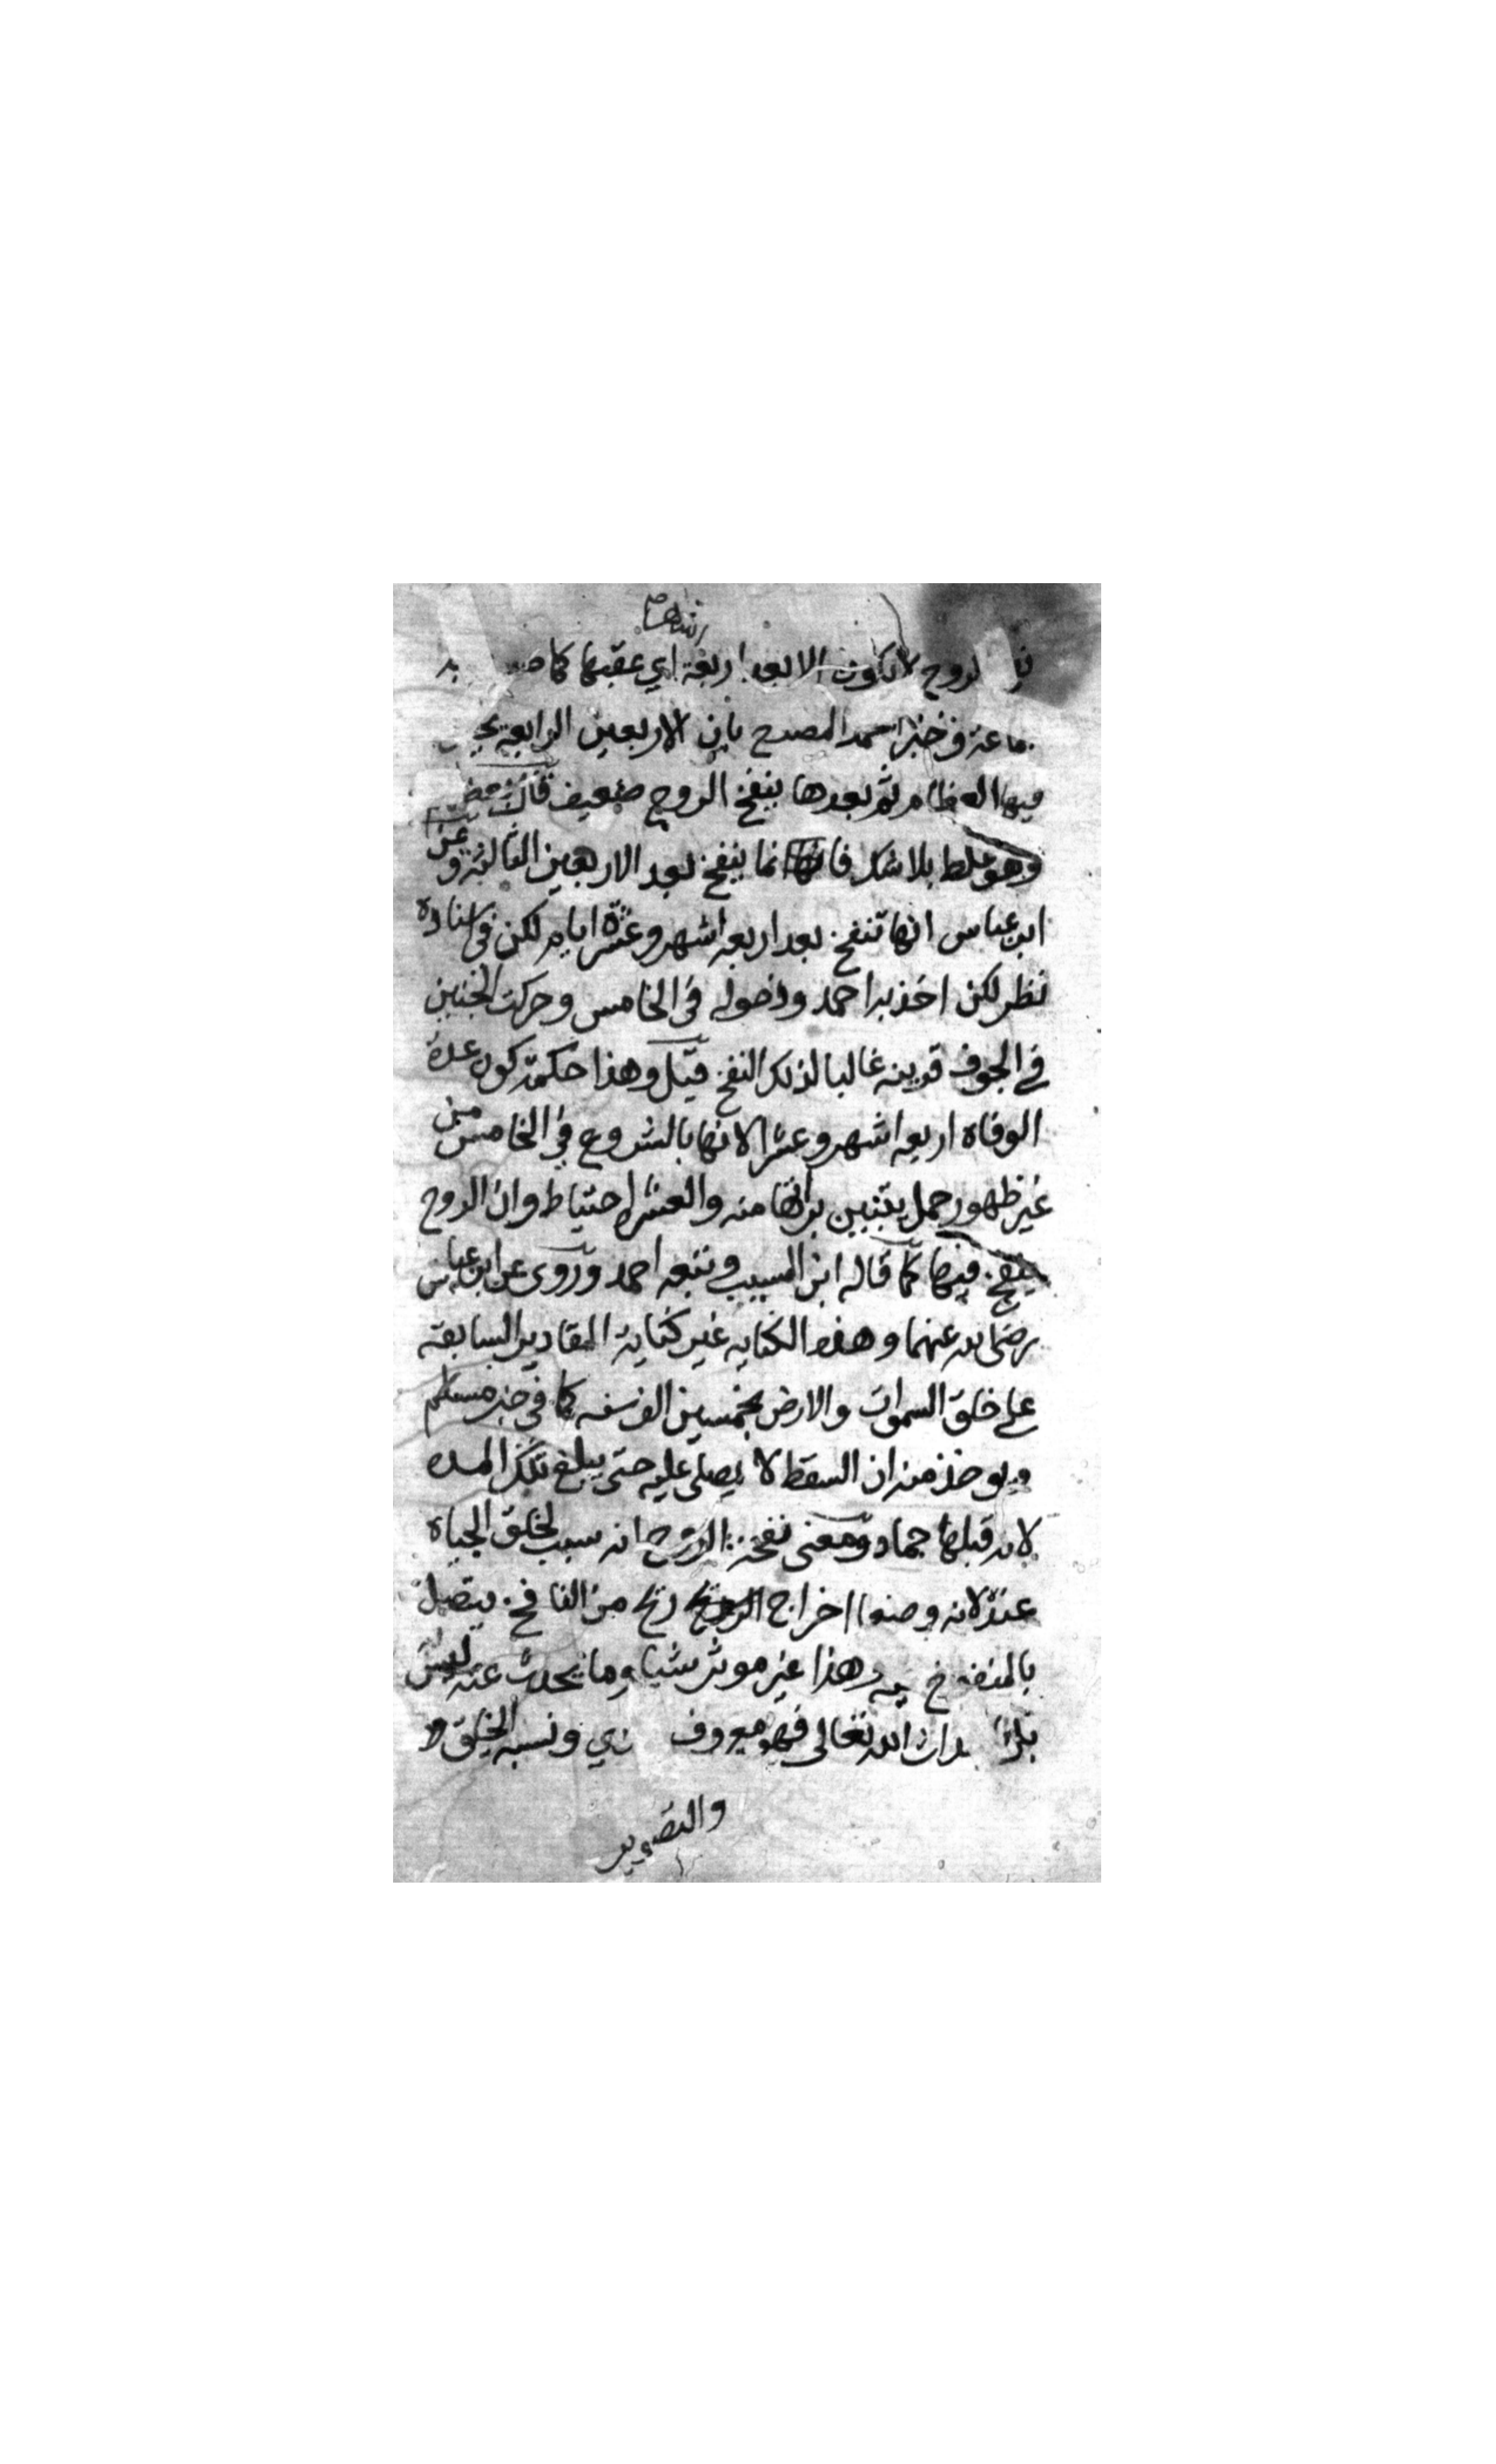 اشهر
الروح لا تكون الا بعد اربعة اي عقبها كما
وخبر احمد المصرح بان الاربعين الرابعة
فيها العظام ثم بعدها ينفخ الروح ضعيف قال بعضهم
وهو غلط بلا شك فانها انما ينفخ بعد الاربعين الثالثة وعن
ابن عباس انها تنفخ بعد اربعه اشهر وعشرة ايام لكن في اسناده
نظر لكن اخذ به احمد ودخوله في الخامس وحركت الجنين
في الجوف قرينه غالبا لذلك النفخ قيل وهذا حكمة كون عدة
الوفاه اربعه اشهر وعشرا لانها بالشروع في الخامس من
غير ظهور حمل يتبين براتها منه والعشر احتياط وان الروح
ينفخ فيها كما قاله ابن المسيب وتبعه احمد وروى عن ابن عباس
رضي الله عنهما وهذه الكتابه غير كتابة المقادير السابقة
على خلق السموات والارض بخمسين الف سنه كما في خبر مسلم
ويوخذ منه ان السقط لا يصلى عليه حتى يبلغ تلك المده
لانه قبلها جماد ومعنى نفخة الروح انه سبب لخلق الحياة
عنده لانه وضعا اخراج ريح من النافخ يتصل
بالمنفوخ فيه وهذا غير موثر شيا وما يحدث عنه ليس
الله تعالى فهو معروف ونسبه الخلق
والتصوير